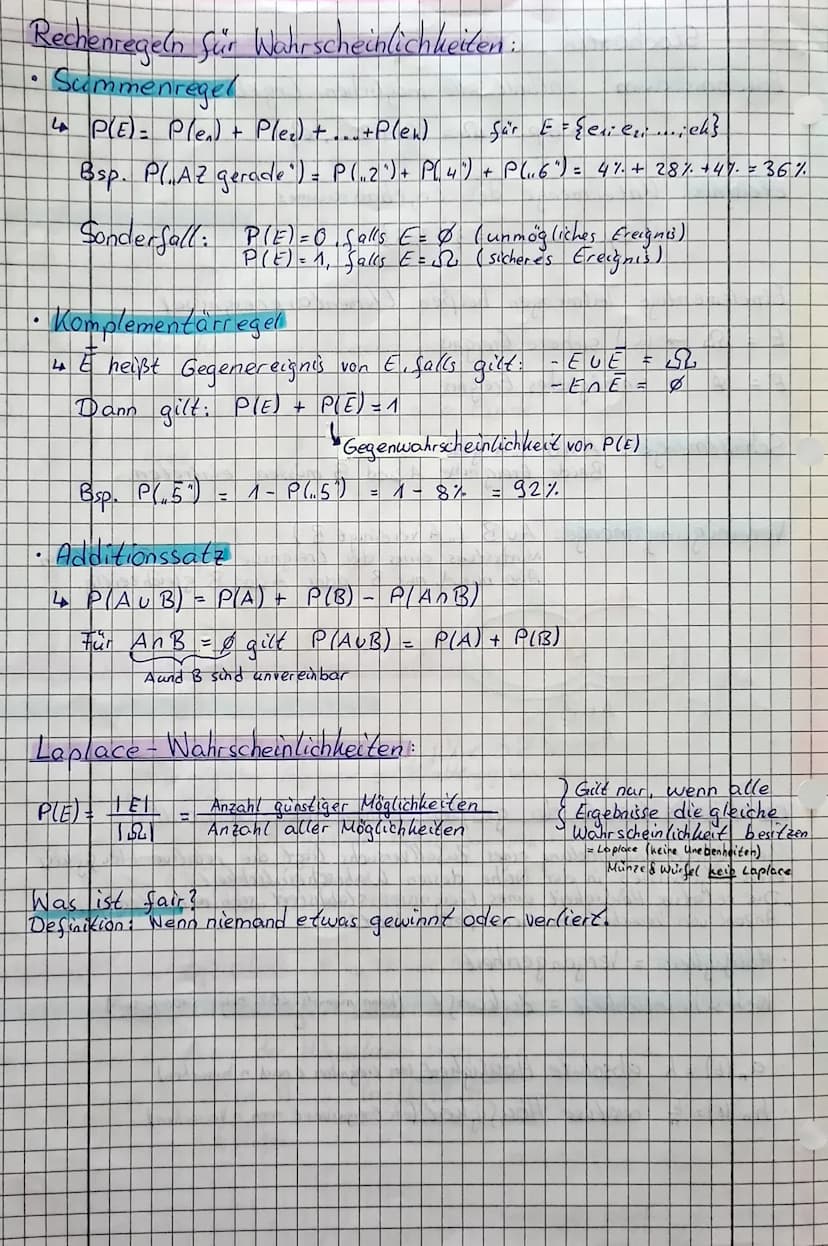 Rechenregeln für Wahrscheinlichkeiten:
• Summenregel
↳ P(E) = P(e₁) + P(e₂) + ... + P(ek) für E = {e₁; e₂; ...; ek}
Bsp. P(„AZ gerade“) = P(„2“) + P(„4“) + P(„6“) = 4% + 28% + 4% = 36%
Sonderfall: P(E) = 0, falls E = Ø (unmögliches Ereignis)
P(E) = 1, falls E = Ω (sicheres Ereignis)
• Komplementärregel
↳ Ē heißt Gegenereignis von E, falls gilt: - E ∪ Ē = Ω
- E ∩ Ē = Ø
Dann gilt: P(E) + P(Ē) = 1
↳ Gegenwahrscheinlichkeit von P(E)
Bsp. P(„5̅“) = 1 - P(„5“) = 1 - 8% = 92%
• Additionssatz
↳ P(A ∪ B) = P(A) + P(B) - P(A ∩ B)
Für A ∩ B = Ø gilt P(A ∪ B) = P(A) + P(B)
A und B sind unvereinbar
Laplace - Wahrscheinlichkeiten:
P(E) = |E| / |Ω| = Anzahl günstiger Möglichkeiten / Anzahl aller Möglichkeiten
Gilt nur, wenn alle
Ergebnisse die gleiche
Wahrscheinlichkeit besitzen
= Laplace (keine Unebenheiten)
Münze & Würfel kein Laplace
Was ist fair?
Definition: Wenn niemand etwas gewinnt oder verliert.